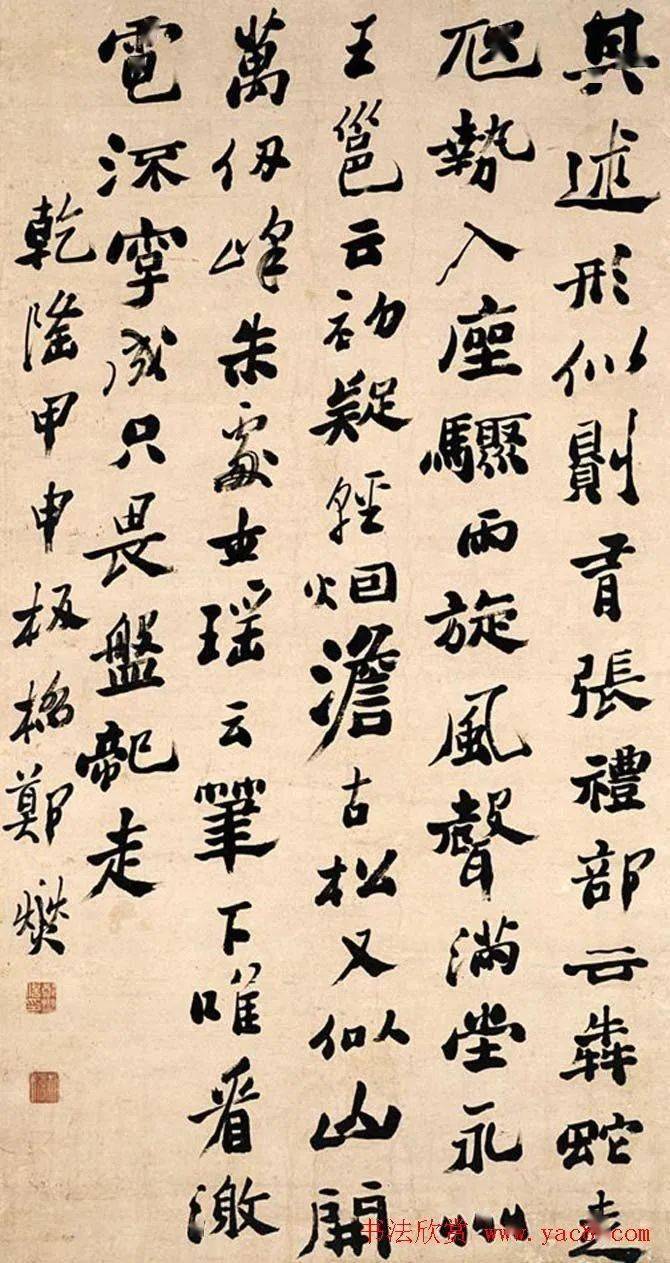 其述形似則有張禮部云犇蛇走
虺勢入座驟雨旋風聲滿堂永州
王邕云初疑輕烟澹古松又似山開
萬仞峰朱處士瑤云筆下唯看激
電流字成只畏盤龍走
乾隆甲申板橋鄭燮
书法欣赏 www.yac8.com